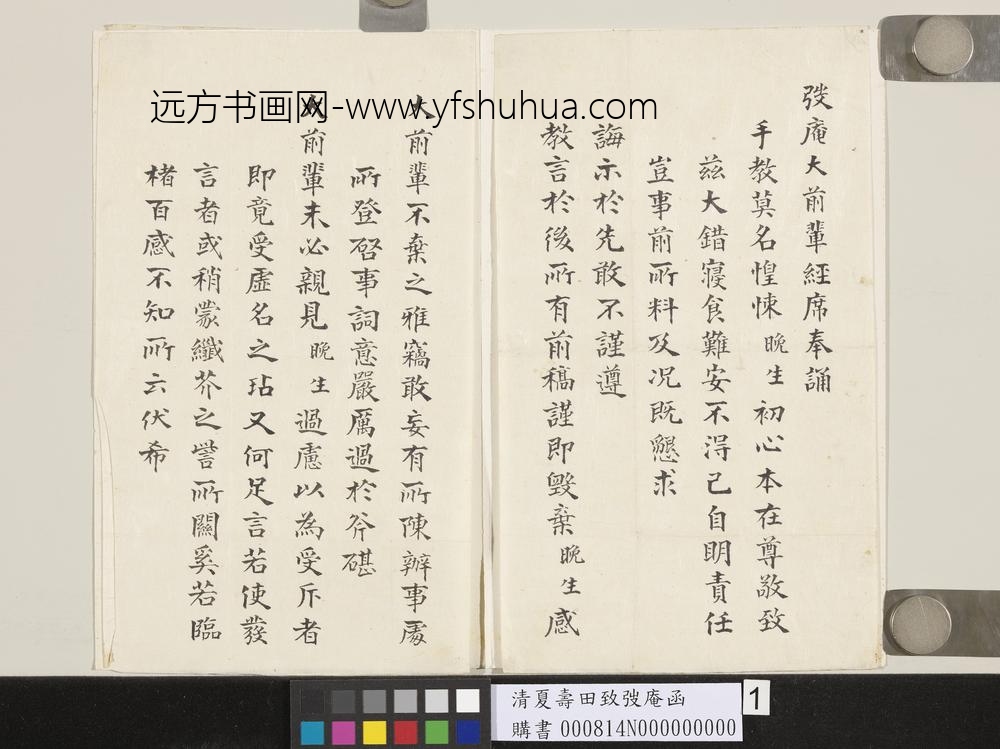 弢庵大前輩經席奉誦
手教莫名惶悚晚生初心本在尊敬致
茲大錯寢食難安不得已自明責任
豈事前所料及况既懇求
誨示於先敢不謹遵
教言於後所有前稿謹即毀棄晚生感
大前輩不棄之雅竊敢妄有所陳辦事處
所登啓事詞意嚴厲過於斧碪
大前輩未必親見晚生過慮以為受斥者
即竟受虛名之玷又何足言若使發
言者或稍蒙纖芥之訾所關奚若臨
楮百感不知所云伏希
远方书画网-www.yfshuhua.com
清夏壽田致弢庵函
購書 000814N000000000
1